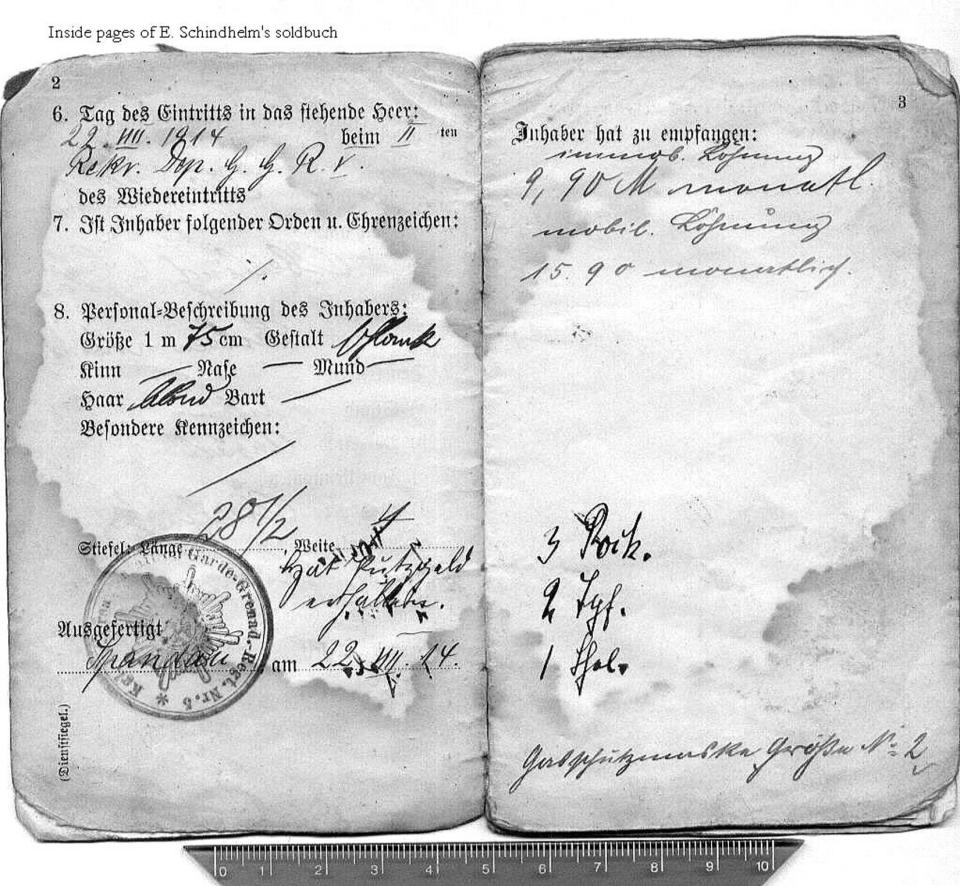 Inside pages of E. Schindhelm's soldbuch
2
6. Tag des Eintritts in das stehende Heer:
22. VIII. 1914 beim II ten
Rekr. Dep. G. G. R. V.
des Wiedereintritts
7. Ist Inhaber folgender Orden u. Ehrenzeichen:
./.
8. Personal-Beschreibung des Inhabers:
Größe 1 m 75 cm Gestalt schlank
Kinn — Nase — Mund —
Haar blond Bart —
Besondere Kennzeichen:
28 1/2 4
Stiefel: Länge Weite
Hat Putzgeld
erhalten.
Ausgefertigt
Spandau, am 22. VIII. 14.
Garde-Grenad.-Regt. Nr. 5
(Dienstsiegel.)
3
Inhaber hat zu empfangen:
immob. Löhnung
9,90 M monatl.
mobil. Löhnung
15.90 monatlich.
3 Rock.
2 Tyf.
1 Chol.
Gasschutzmaske Größe No 2
0 1 2 3 4 5 6 7 8 9 10